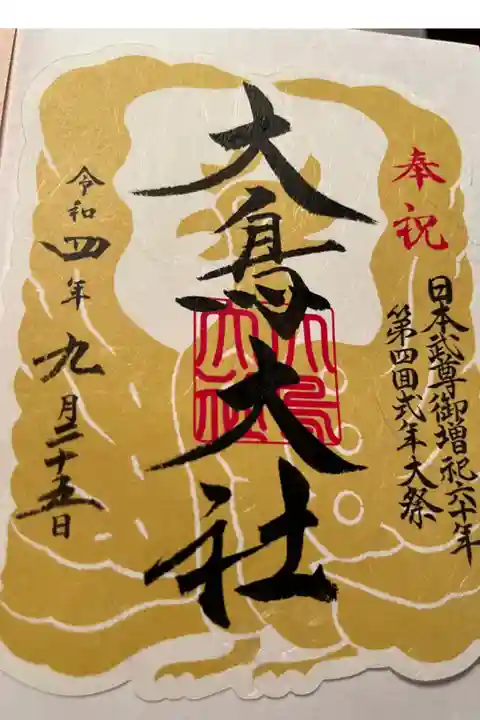 奉祝
日本武尊御増祀六十年
第四回式年大祭
大鳥大社
大鳥大社
令和四年九月二十五日